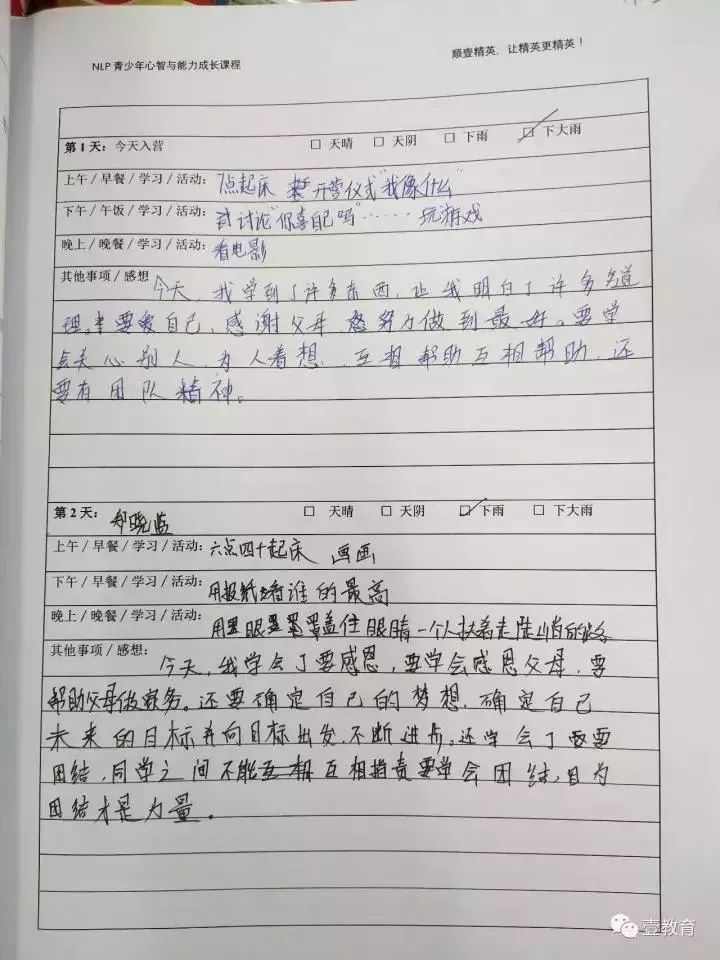 NLP 青少年心智与能力成长课程
顺壹精英，让精英更精英！
第 1 天：今天入营 □ 天晴 □ 天阴 □ 下雨 ☑ 下大雨
上午 / 早餐 / 学习 / 活动：7点起床 开营仪式"我像什么"
下午 / 午饭 / 学习 / 活动：讨论"你喜自己吗"…… 玩游戏
晚上 / 晚餐 / 学习 / 活动：看电影
其他事项 / 感想 今天，我学到了许多东西，让我明白了许多道
理。要爱自己，感谢父母，努力做到最好。要学
会关心别人，为人着想，互相帮助互相帮助，还
要有团队精神。
第 2 天： □ 天晴 □ 天阴 ☑ 下雨 □ 下大雨
上午 / 早餐 / 学习 / 活动：六点四十起床 画画
下午 / 早餐 / 学习 / 活动：用报纸看谁的最高
晚上 / 晚餐 / 学习 / 活动：用眼罩盖住眼睛一个人扶着走
其他事项 / 感想：今天，我学会了要感恩，要学会感恩父母，要
帮助父母做家务。还要确定自己的梦想，确定自己
未来的目标并向目标出发，不断进步。还学会了要
团结，同学之间不能互相指责要学会团结，因为
团结才是力量。
壹教育